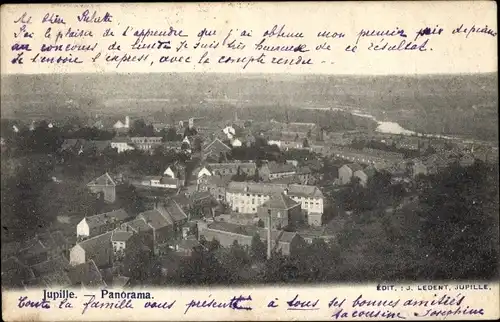 Ma chère Juliette
J'ai le plaisir de t'apprendre que j'ai obtenu mon premier prix de piano
au concours de lundi. Je suis très heureuse de ce résultat.
Je t'envoie l'express, avec le compte rendu.
Jupille. — Panorama.
ÉDIT. : J. LEDENT, JUPILLE.
Toute la famille vous présente à tous ses bonnes amitiés
ta cousine Joséphine